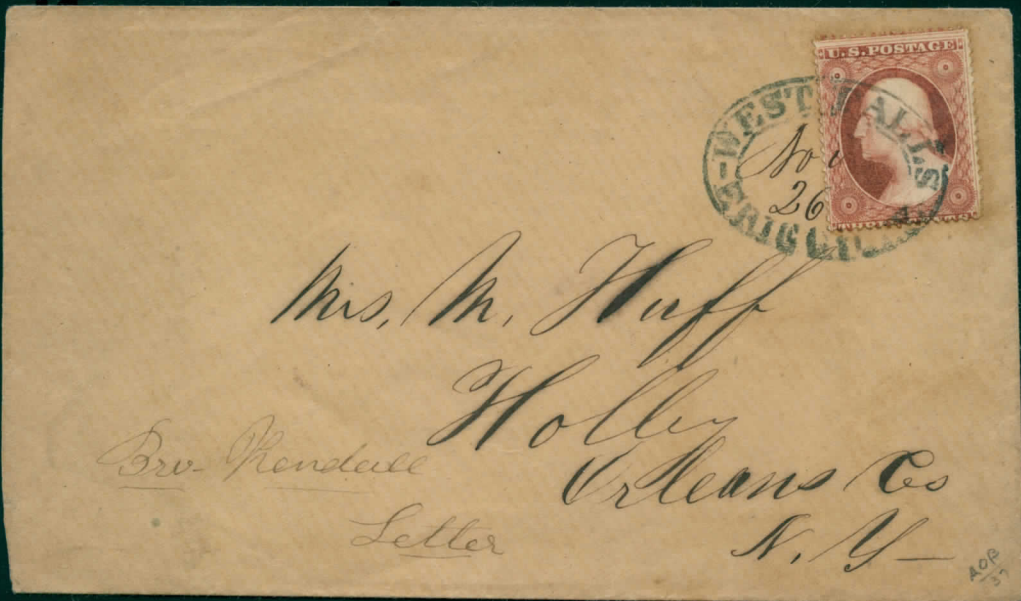 U.S. POSTAGE
WEST FALLS
Nov
26
Mrs. M. Huff
Holley
Orleans Co
N. Y
Bro. Kendall
Letter